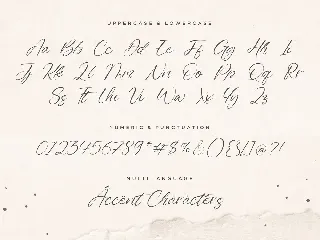 UPPERCASE & LOWERCASE
Aa Bb Cc Dd Ee Ff Gg Hh Ii
Jj Kk Ll Mm Nn Oo Pp Qq Rr
Ss Tt Uu Vv Ww Xx Yy Zz
NUMERIC & PUNCTUATION
0123456789*#$%&(){}[]@?!
MULTILANGUAGE
Accent Characters